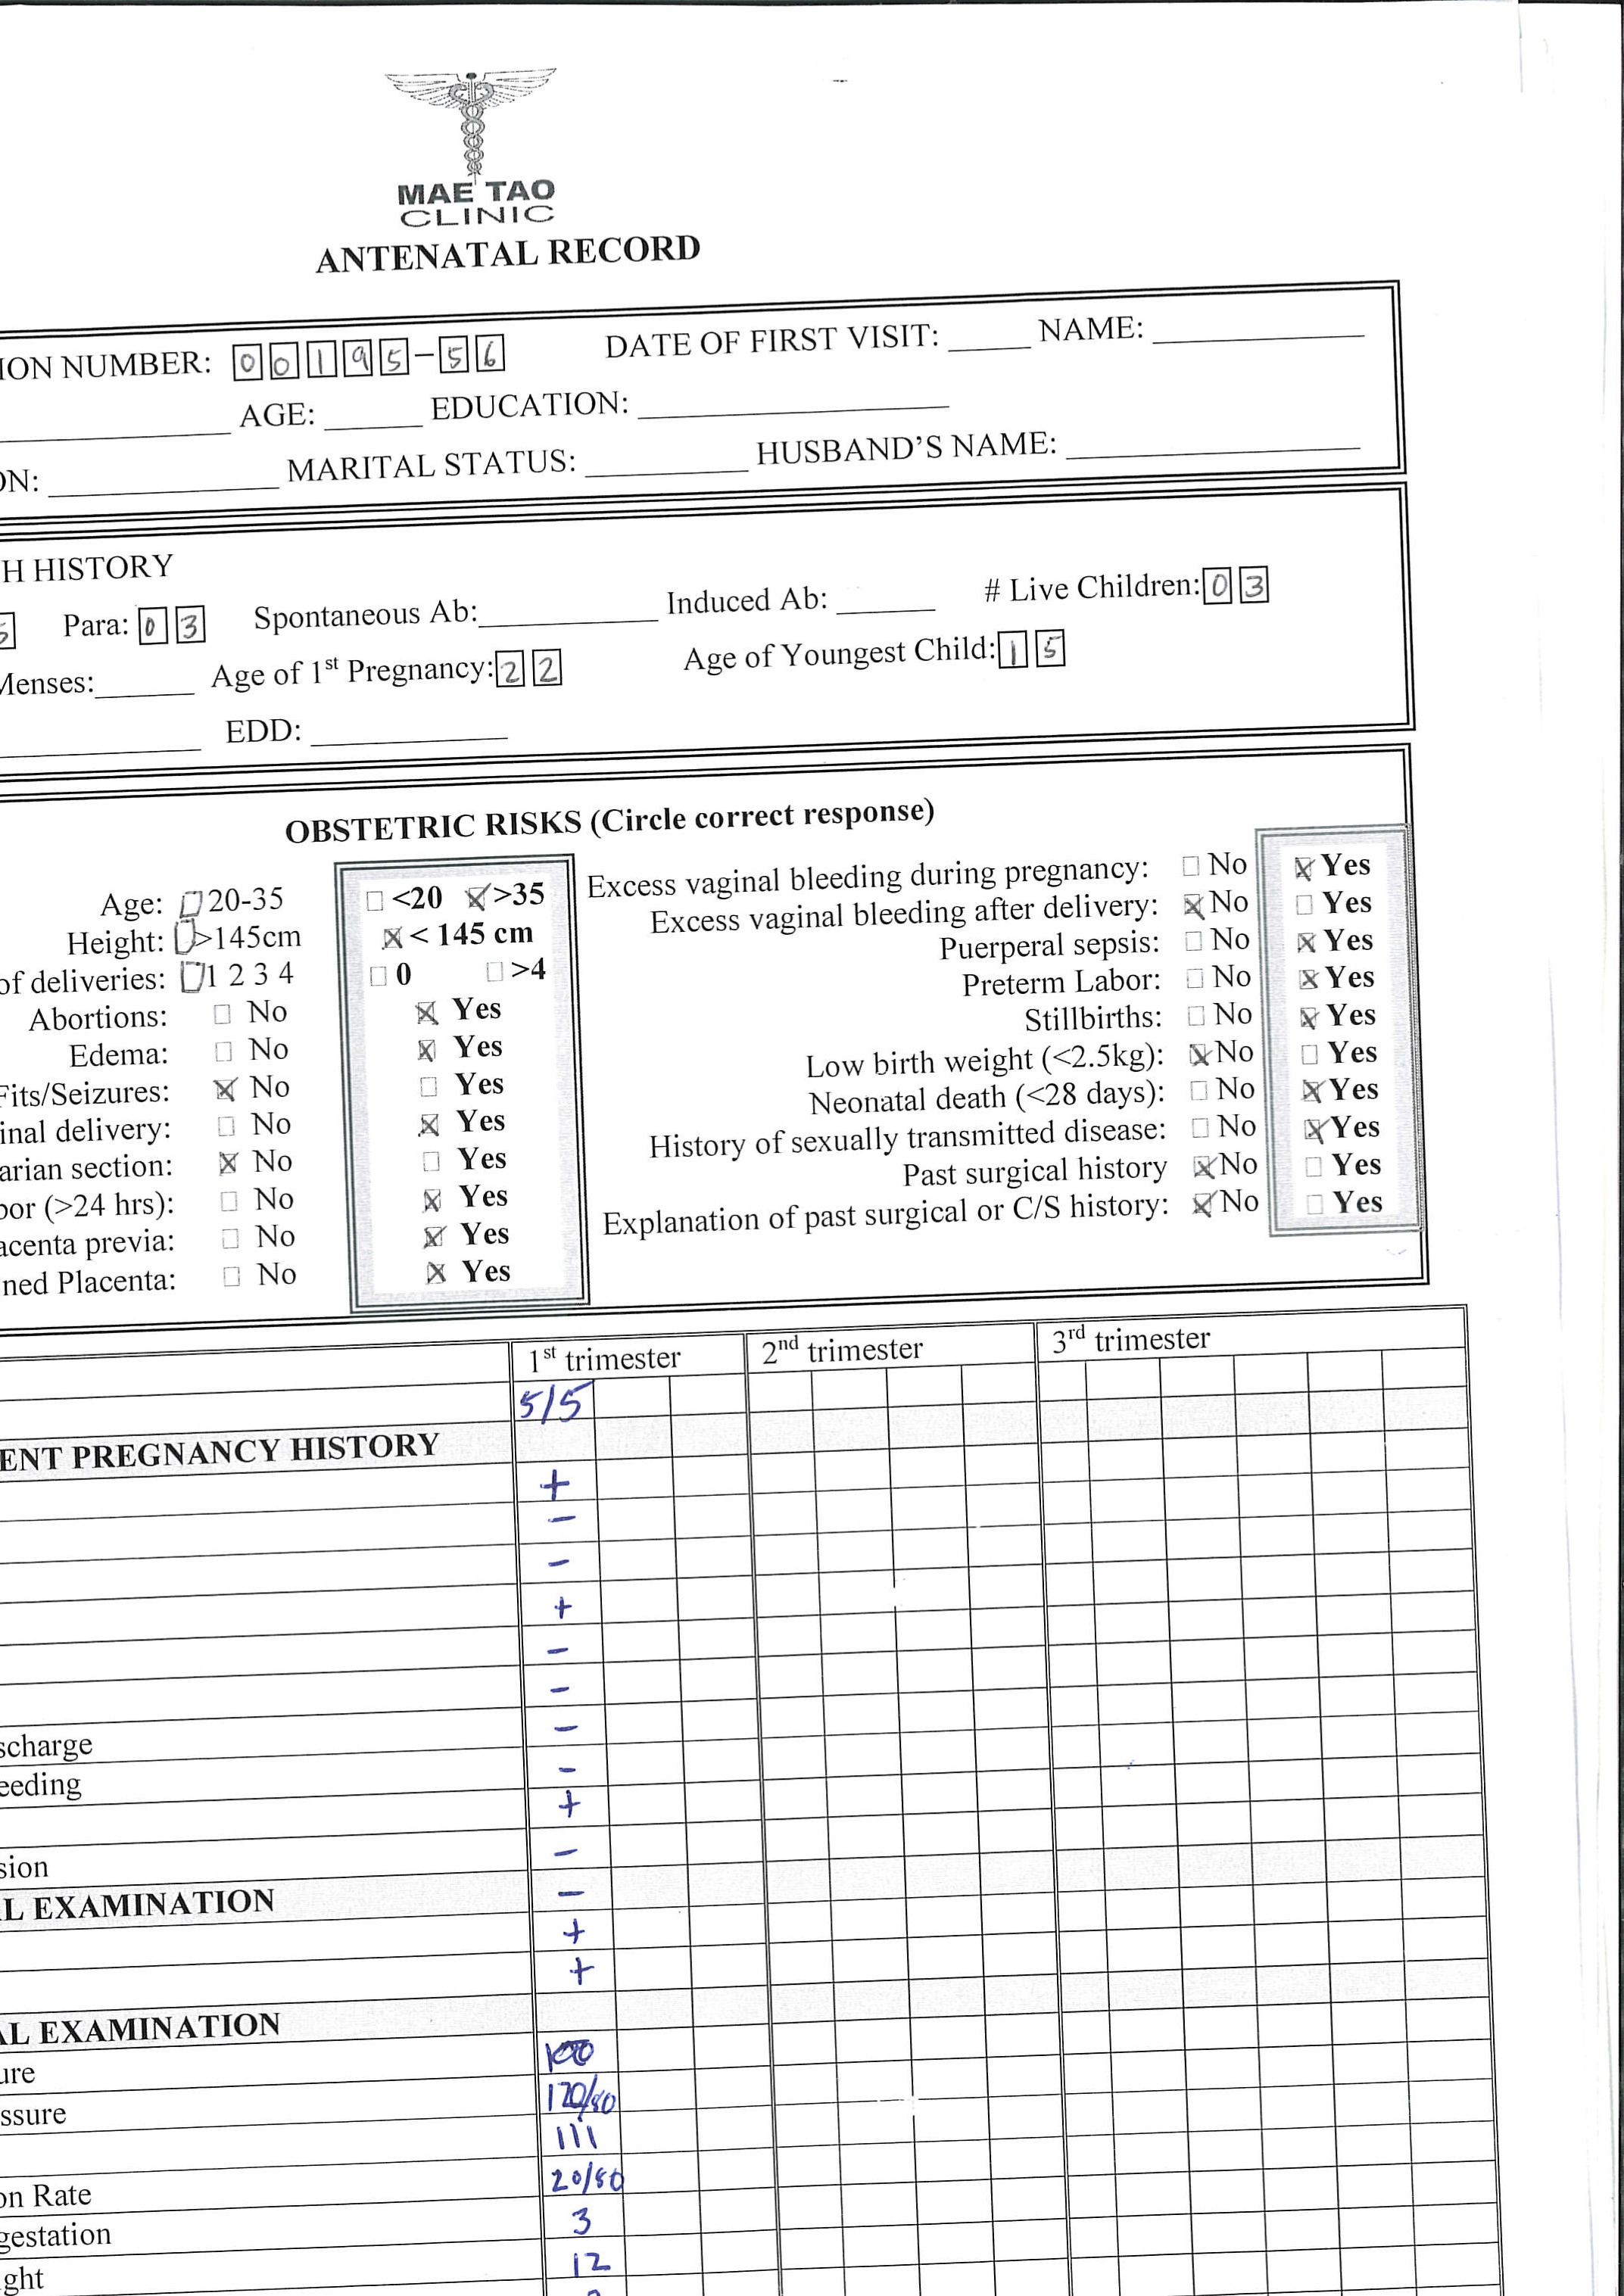 MAE TAO
CLINIC
ANTENATAL RECORD
ION NUMBER: 00195-56 DATE OF FIRST VISIT: NAME:
AGE: EDUCATION:
ON: MARITAL STATUS: HUSBAND'S NAME:
H HISTORY
5 Para: 03 Spontaneous Ab: Induced Ab: # Live Children: 03
Menses: Age of 1st Pregnancy: 22 Age of Youngest Child: 15
EDD:
OBSTETRIC RISKS (Circle correct response)
Age: ☐ 20-35 ☐ <20 ☒ >35
Height: ☐ >145cm ☒ < 145 cm
of deliveries: ☐ 1 2 3 4 ☐ 0 ☐ >4
Abortions: ☐ No ☒ Yes
Edema: ☐ No ☒ Yes
Fits/Seizures: ☒ No ☐ Yes
inal delivery: ☐ No ☒ Yes
arian section: ☒ No ☐ Yes
bor (>24 hrs): ☐ No ☒ Yes
acenta previa: ☐ No ☒ Yes
ned Placenta: ☐ No ☒ Yes
Excess vaginal bleeding during pregnancy: ☐ No ☒ Yes
Excess vaginal bleeding after delivery: ☒ No ☐ Yes
Puerperal sepsis: ☐ No ☒ Yes
Preterm Labor: ☐ No ☒ Yes
Stillbirths: ☐ No ☒ Yes
Low birth weight (<2.5kg): ☒ No ☐ Yes
Neonatal death (<28 days): ☐ No ☒ Yes
History of sexually transmitted disease: ☐ No ☒ Yes
Past surgical history ☒ No ☐ Yes
Explanation of past surgical or C/S history: ☒ No ☐ Yes
1st trimester 2nd trimester 3rd trimester
5/5
ENT PREGNANCY HISTORY
+
-
-
+
-
-
scharge -
eeding -
+
sion -
L EXAMINATION -
+
+
AL EXAMINATION
ure 100
ssure 120/80
111
on Rate 20/80
gestation 3
ght 12